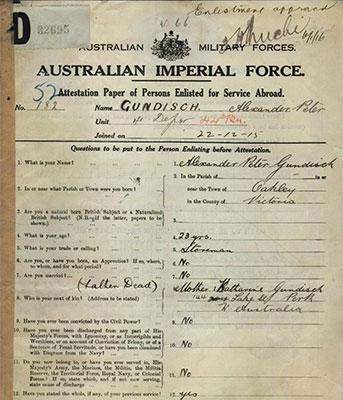 Enlistment approved
v. 66
D 32695
AUSTRALIAN MILITARY FORCES.
AUSTRALIAN IMPERIAL FORCE.
Attestation Paper of Persons Enlisted for Service Abroad.
No. 182 Name GUNDISCH. Alexander Peter
Unit 4 Depot 44 Bn.
Joined on 22-12-15
Questions to be put to the Person Enlisting before Attestation.
1. What is your Name? 1. Alexander Peter Gundisch
2. In or near what Parish or Town were you born? 2. In the Parish of in or
near the Town of Oakley
in the County of Victoria
3. Are you a natural born British Subject or a Naturalized
British Subject? (N.B.—If the latter, papers to be
shown.) 3.
4. What is your age? 4. 23 yrs.
5. What is your trade or calling? 5. Storeman
6. Are you, or have you been, an Apprentice? If so, where,
to whom, and for what period? 6. No
7. Are you married? 7. No
(Father Dead)
8. Who is your next of kin? (Address to be stated) 8. Mother: Katharine Gundisch
144 Lake St Perth
W Australia
9. Have you ever been convicted by the Civil Power? 9. No
10. Have you ever been discharged from any part of His
Majesty's Forces, with Ignominy, or as Incorrigible and
Worthless, or on account of Conviction of Felony, or of a
Sentence of Penal Servitude, or have you been dismissed
with Disgrace from the Navy? 10. No
11. Do you now belong to, or have you ever served in, His
Majesty's Army, the Marines, the Militia, the Militia
Reserve, the Territorial Force, Royal Navy, or Colonial
Forces? If so, state which, and if not now serving,
state cause of discharge 11. No
12. Have you stated the whole, if any, of your previous service? 12. yes